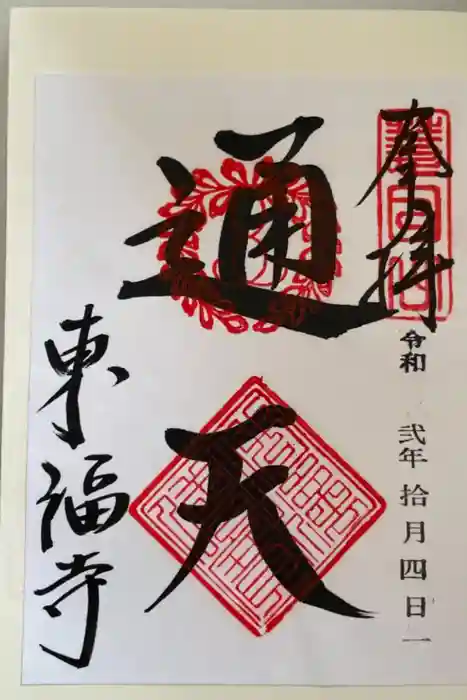 奉拝
令和 弐年 拾月 四日一
通天
東福寺